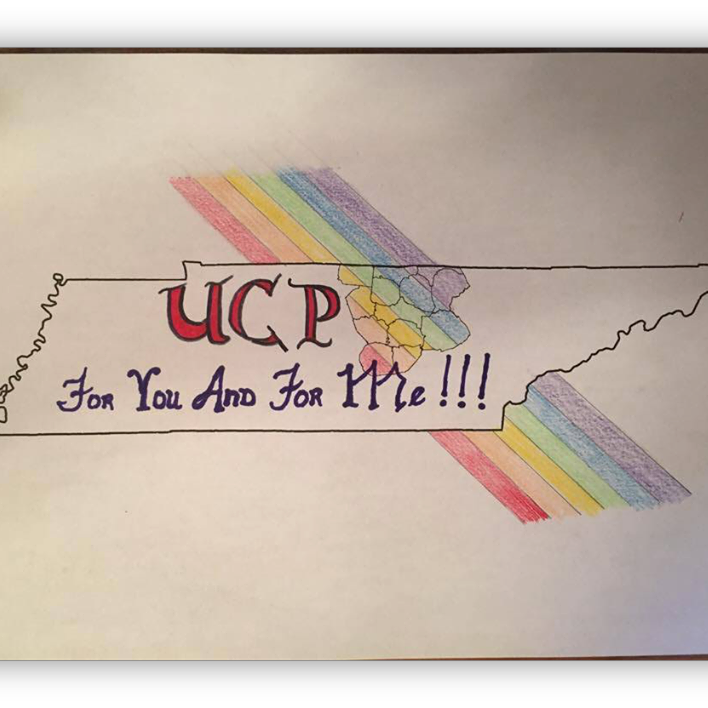 UCP
For You And For Me !!!